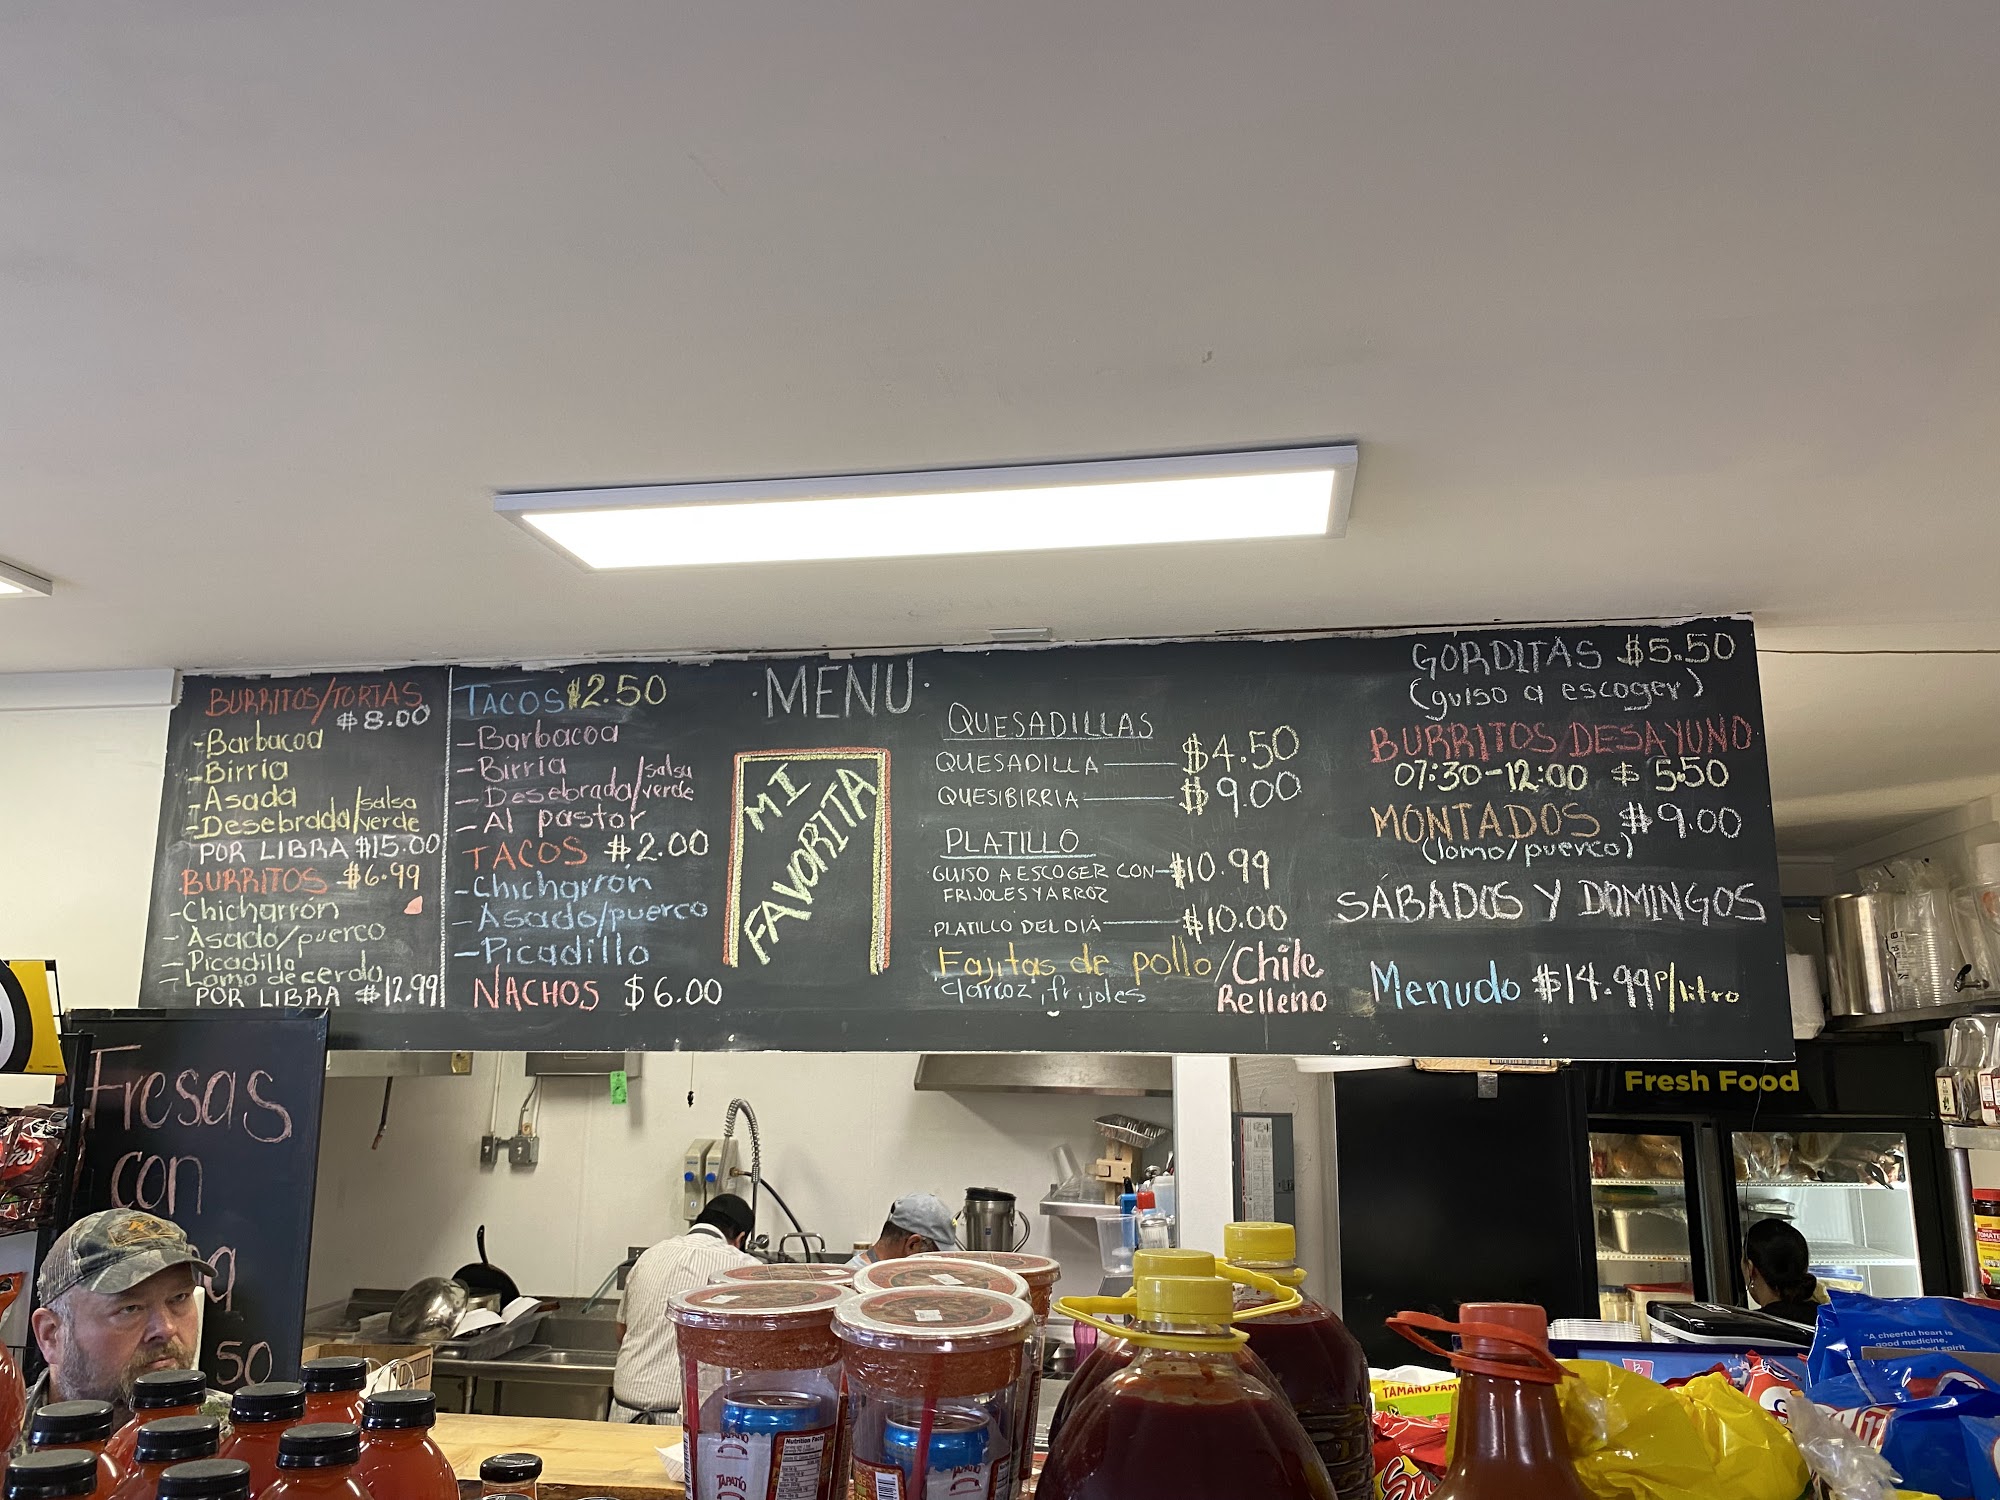 BURRITOS/TORTAS
$8.00
-Barbacoa
-Birria
-Asada
-Desebrada/salsa verde
POR LIBRA $15.00
BURRITOS $6.99
-Chicharrón
- Asado/puerco
-Picadillo
-Lomo de cerdo
POR LIBRA $12.99
TACOS $2.50
-Barbacoa
-Birria
-Desebrada/salsa verde
-Al pastor
TACOS $2.00
-Chicharron
-Asado/puerco
-Picadillo
NACHOS $6.00
·MENU·
MI
FAVORITA
QUESADILLAS
QUESADILLA $4.50
QUESIBIRRIA $9.00
PLATILLO
·GUISO A ESCOGER CON $10.99
FRIJOLES Y ARROZ
·PLATILLO DEL DIA $10.00
Fajitas de pollo/Chile
c/arroz, frijoles Relleno
GORDITAS $5.50
(guiso a escoger)
BURRITOS DESAYUNO
07:30-12:00 $5.50
MONTADOS $9.00
(lomo/puerco)
SÁBADOS Y DOMINGOS
Menudo $14.99 p/litro
Fresas
con
50
Fresh Food
"A cheerful heart is
good medicine,
TAMAÑO FAM
Nutrition Facts
TAPATIO
TAPATIO